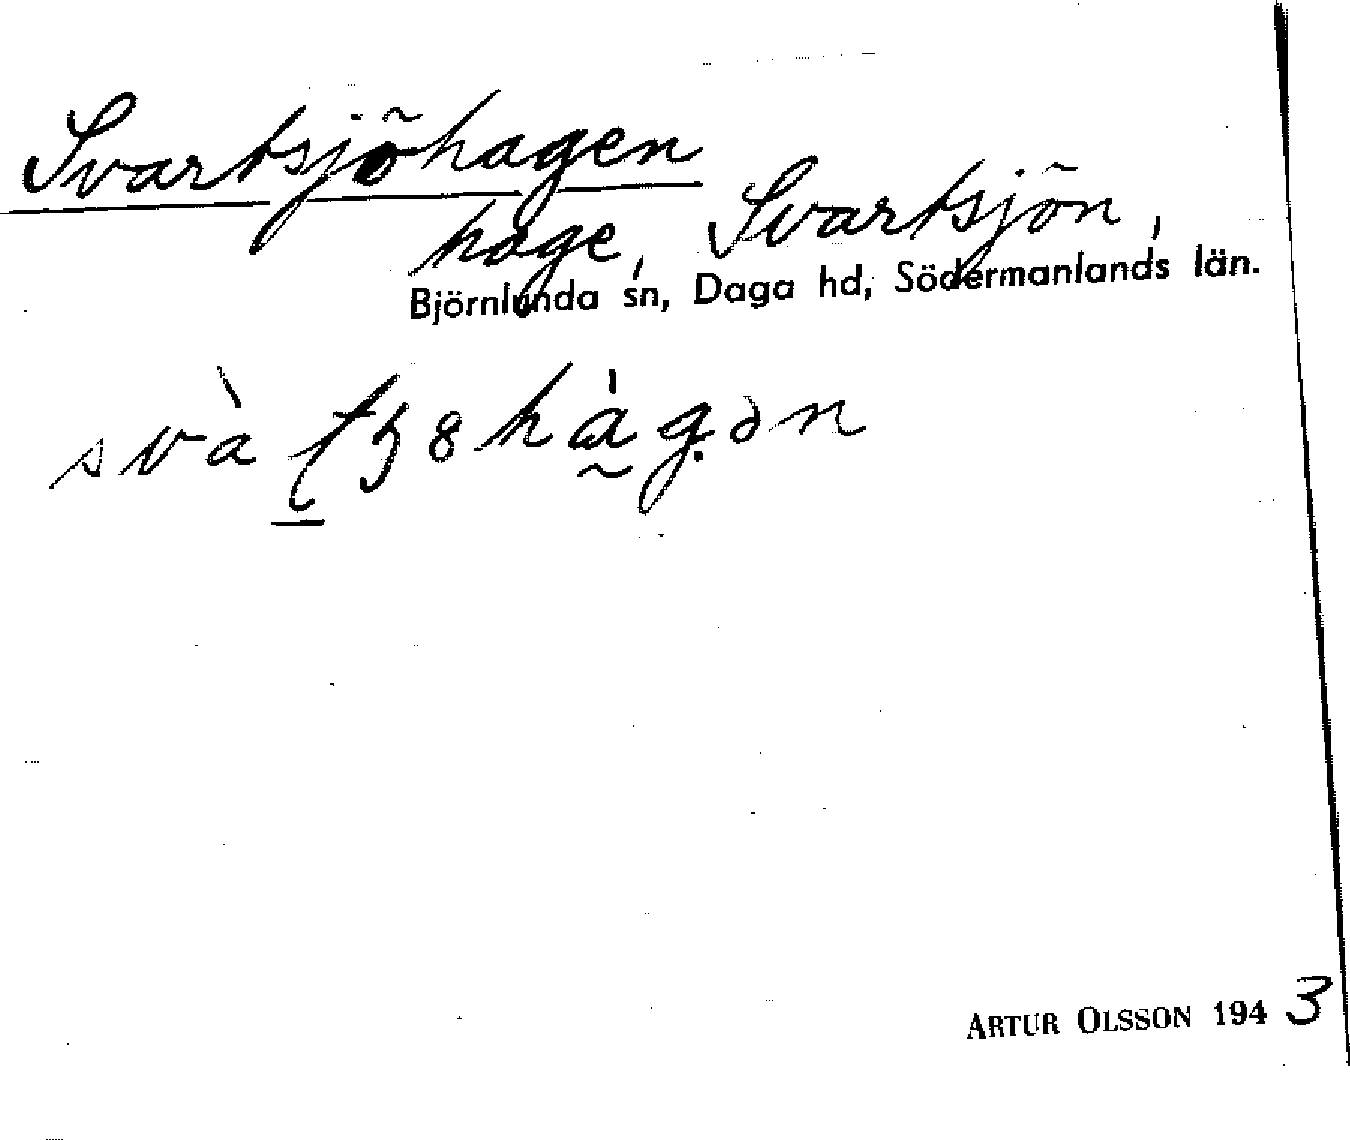 Svartsjöhagen
hage, Svartsjön,
Björnlunda sn, Daga hd, Södermanlands län.
ARTUR OLSSON 1943